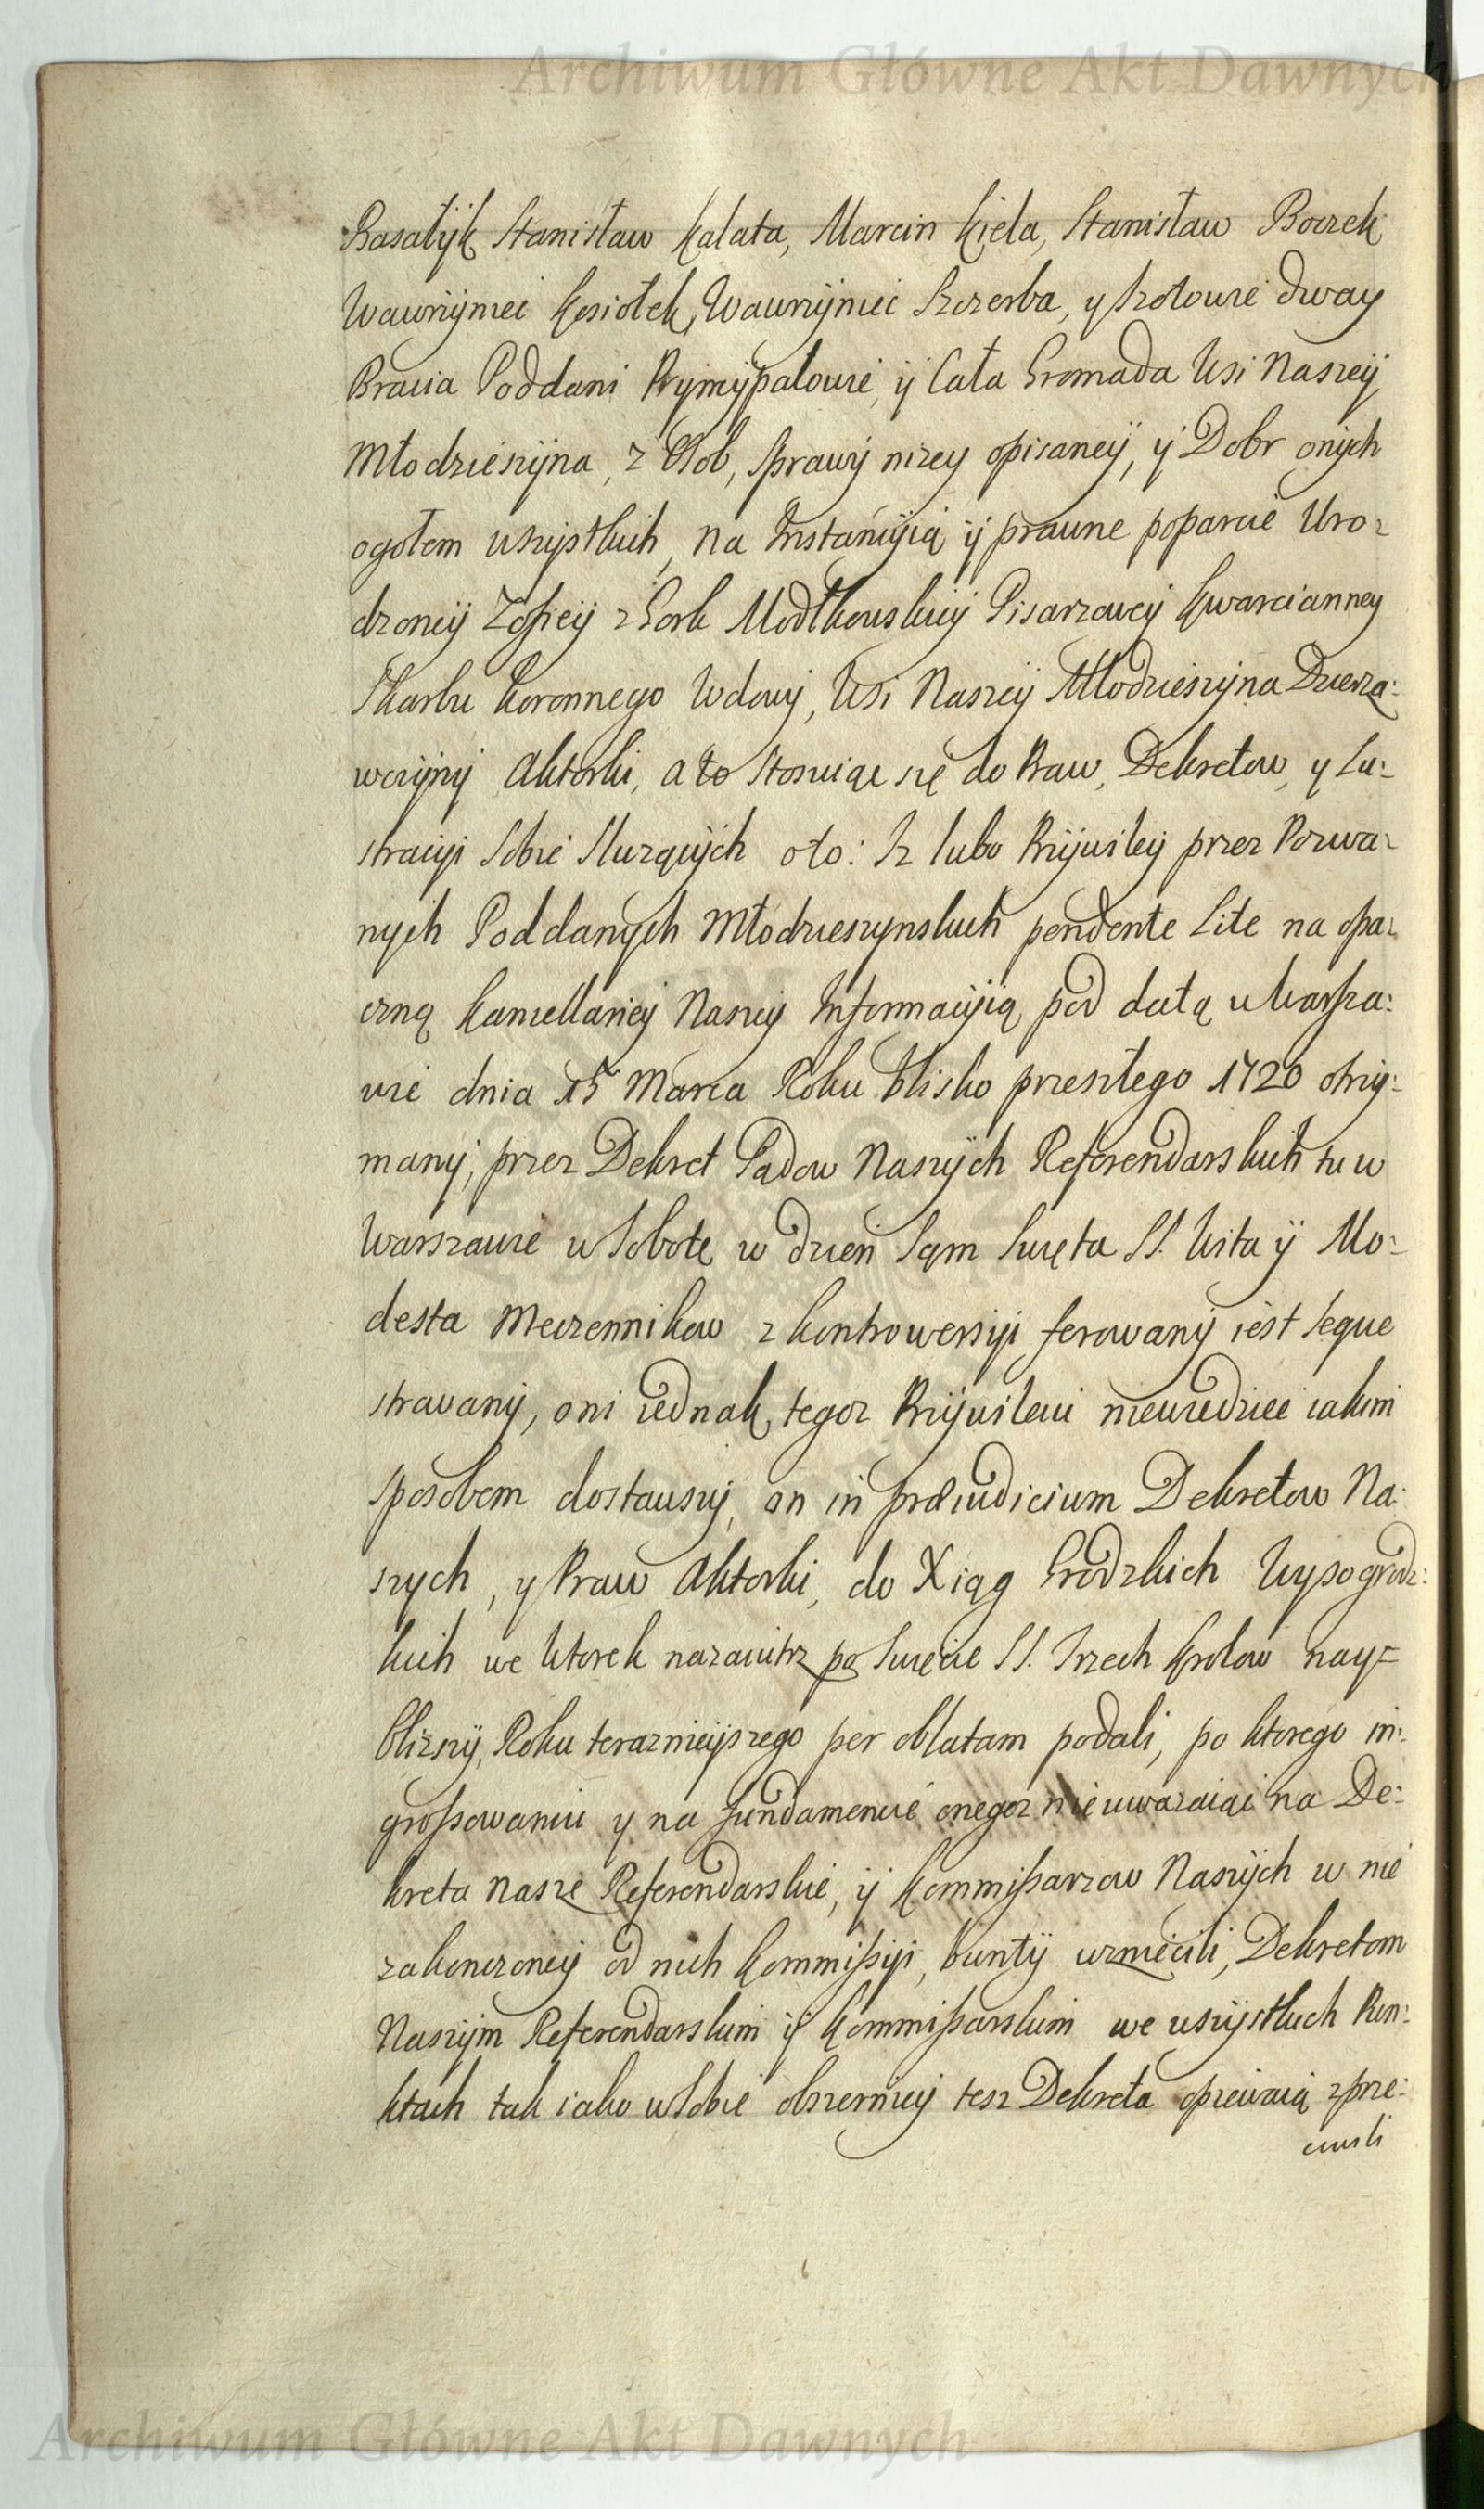 Archiwum Główne Akt Dawnych
Basałyk Stanisław Kałata, Marcin Kiela, Stanisław Boczek
Wawrzyniec Kosiołek, Wawrzyniec Szczerba, y Szotowie dway
Bracia Poddani Prymypałowie, y Cała Gromada Wsi Naszey
Młodzieszyna, z Osob, sprawy nizey opisaney, y Dobr onych
ogołem wszystkich, na Instancyią y prawne poparcie Uro-
dzoney Zofiey z Gork Modłkowskiey Pisarzowey Kwarcianney
Skarbu Koronnego Wdowy, Wsi Naszey Młodzieszyna Dzierza-
wczyny Aktorki, a to stosuiąc się do Praw, Dekretow, y Lu-
stracyi Sobie Sluzących oto: Iz lubo Przywiley przez Pozwa-
nych Poddanych Młodzieszynskich pendente Lite na opa-
czną Kancellaryey Naszey Informacyią pod datą w Warsza-
wie dnia 15 Marca Roku blisko przeszłego 1720 otrzy-
many, przez Dekret Sądow Naszych Referendarskich tu w
Warszawie w Sobotę w dzien sąm Swięta SS. Wita y Mo-
desta Męczennikow z kontrowersyi ferowany iest seque
strowany, oni iednak tegoz Przywileiu niewiedziec iakim
sposobem dostawszy, on in præiudicium Dekretow Na-
szych, y Praw Aktorki, do Xiąg Grodzkich Wysogrodz-
kich we Wtorek nazaiutrz po Swięcie SS. Trzech Krolow nay-
blizszy, Roku terazniejszego per oblatam podali, po ktorego in-
grossowaniu y na fundamencie onegoz nie uwazaiąc na De-
kreta nasze Referendarskie, y Kommissarzow Naszych w nie
zakonczoney od nich Kommissyi, bunty wzniecili, Dekretom
Naszym Referendarskim y Kommissarskim we wszystkich Pun-
ktach tak iako w Sobie obszerniey tesz Dekreta opiewaią zprze-
ciwili
Archiwum Główne Akt Dawnych